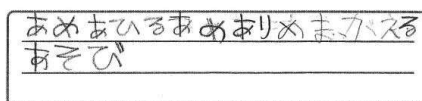 あめあひるあめありめまがえる
あそび